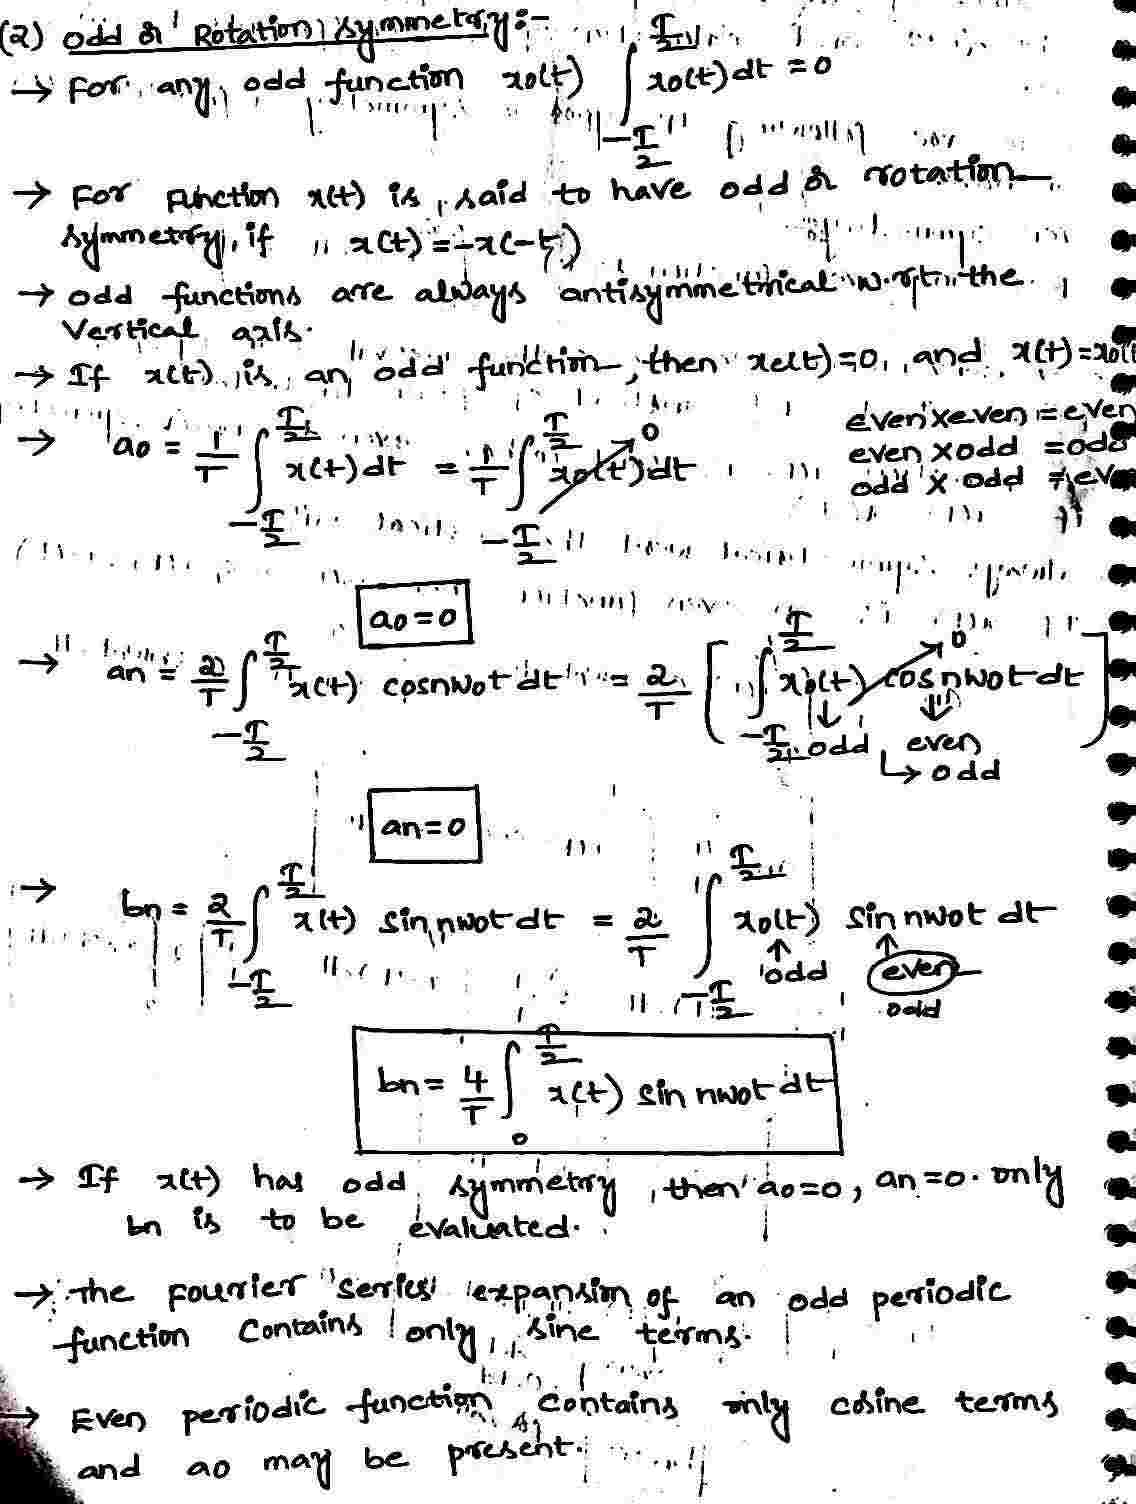 (2) odd or Rotation symmetry:-
→ For any odd function x₀(t) ∫_{-T/2}^{T/2} x₀(t) dt = 0
→ For function x(t) is said to have odd or rotation
symmetry, if x(t) = -x(-t)
→ odd functions are always antisymmetrical w.r.t. the
Vertical axis.
→ If x(t) is an odd function, then xe(t) = 0, and x(t) = x₀(t
even x even = even
even x odd = odd
odd x odd = eve
→ a₀ = 1/T ∫_{-T/2}^{T/2} x(t) dt = 1/T ∫_{-T/2}^{T/2} x₀(t) dt → 0
a₀ = 0
→ an = 2/T ∫_{-T/2}^{T/2} x(t) cos nω₀t dt = 2/T [ ∫_{-T/2}^{T/2} x₀(t) cos nω₀t dt ] → 0
odd even
↳ odd
an = 0
→ bn = 2/T ∫_{-T/2}^{T/2} x(t) sin nω₀t dt = 2/T ∫_{-T/2}^{T/2} x₀(t) sin nω₀t dt
odd even
odd
bn = 4/T ∫_{0}^{T/2} x(t) sin nω₀t dt
→ If x(t) has odd symmetry, then a₀ = 0, an = 0. only
bn is to be evaluated.
→ The Fourier series expansion of an odd periodic
function contains only sine terms.
→ Even periodic function contains only cosine terms
and a₀ may be present.